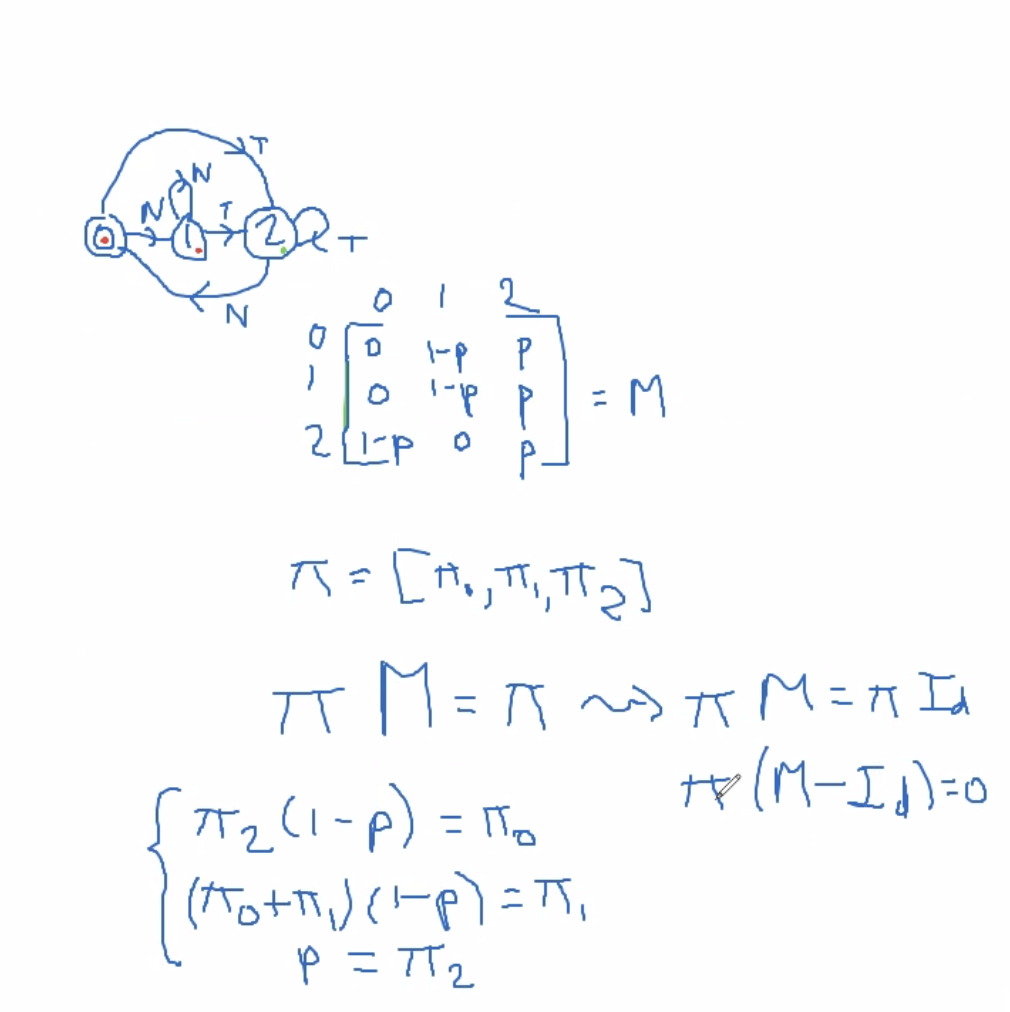 T
N
N T
0 1 2 T
N
0 1 2
0 0 1-p p
1 0 1-p p = M
2 1-p 0 p
π = [π₀, π₁, π₂]
π M = π ⇝ π M = π Id
π (M - Id) = 0
π₂ (1 - p) = π₀
(π₀ + π₁) (1 - p) = π₁
p = π₂